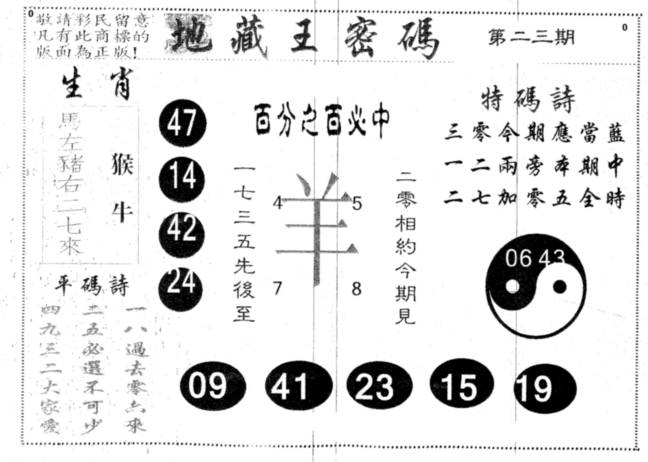 敬請彩民留意
凡有此商標的
版面為正版!
地藏王密碼
第二三期
生肖
馬左豬右二七來
猴牛
47
14
42
24
百分之百必中
一七三五先後至
羊
4
5
7
8
二零相約今期見
特碼詩
三零今期應當藍
一二兩旁本期中
二七加零五全時
06 43
平碼詩
一八過去零六來
二五必選不可少
四九三二大家愛
09
41
23
15
19